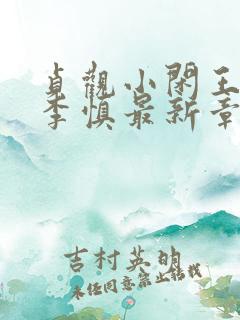 貞觀小閑王
李慎最新章
吉村英明
未任同意禁止转载